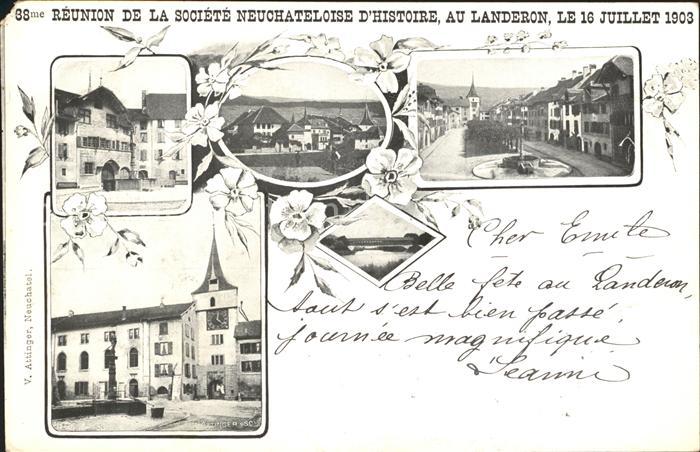 38me RÉUNION DE LA SOCIÉTÉ NEUCHATELOISE D'HISTOIRE, AU LANDERON, LE 16 JUILLET 1903
Cher Emile
Belle fête au Landeron
tout s'est bien passé,
journée magnifique
V. Attinger, Neuchatel.